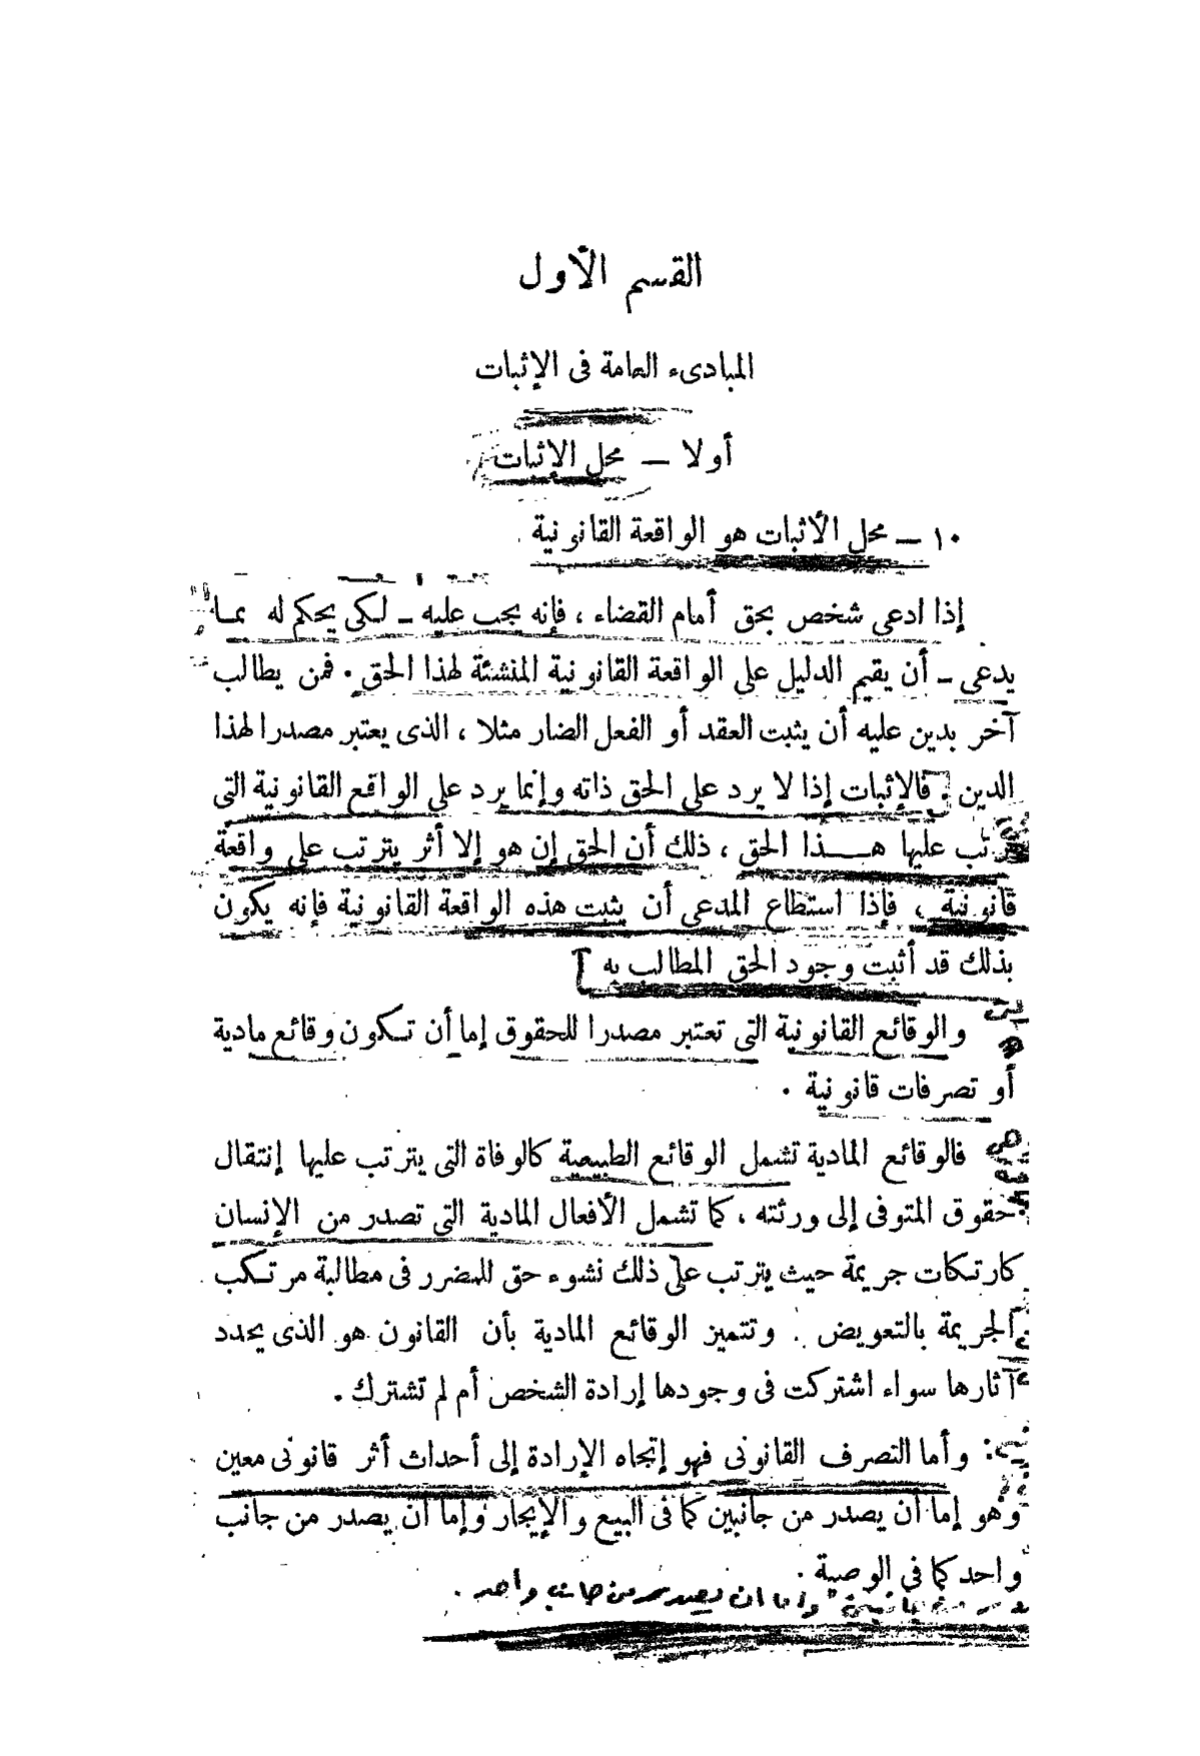 القسم الأول
المبادىء العامة فى الإثبات
أولا — محل الإثبات
١٠ — محل الأثبات هو الواقعة القانونية
إذا ادعى شخص بحق أمام القضاء ، فإنه يجب عليه – لكى يحكم له بما
يدعى – أن يقيم الدليل على الواقعة القانونية المنشئة لهذا الحق . فمن يطالب
آخر بدين عليه أن يثبت العقد أو الفعل الضار مثلا ، الذى يعتبر مصدرا لهذا
الدين . فالإثبات إذا لا يرد على الحق ذاته وإنما يرد على الواقع القانونية التى
ترتب عليها هـذا الحق ، ذلك أن الحق إن هو إلا أثر يترتب على واقعة
قانونية ، فإذا استطاع المدعى أن يثبت هذه الواقعة القانونية فإنه يكون
بذلك قد أثبت وجود الحق المطالب به
والوقائع القانونية التى تعتبر مصدرا للحقوق إما أن تكون وقائع مادية
أو تصرفات قانونية .
فالوقائع المادية تشمل الوقائع الطبيعية كالوفاة التى يترتب عليها إنتقال
حقوق المتوفى إلى ورثته ، كما تشمل الأفعال المادية التى تصدر من الإنسان
كارتكات جريمة حيث يترتب على ذلك نشوء حق للمضرر فى مطالبة مرتكب
الجريمة بالتعويض . وتتميز الوقائع المادية بأن القانون هو الذى يحدد
آثارها سواء اشتركت فى وجودها إرادة الشخص أم لم تشترك .
وأما التصرف القانونى فهو إتجاه الإرادة إلى أحداث أثر قانونى معين
وهو إما أن يصدر من جانبين كما فى البيع والإيجار وإما أن يصدر من جانب
واحد كما فى الوصية .
وإما ان يصدر من جانب واحد .